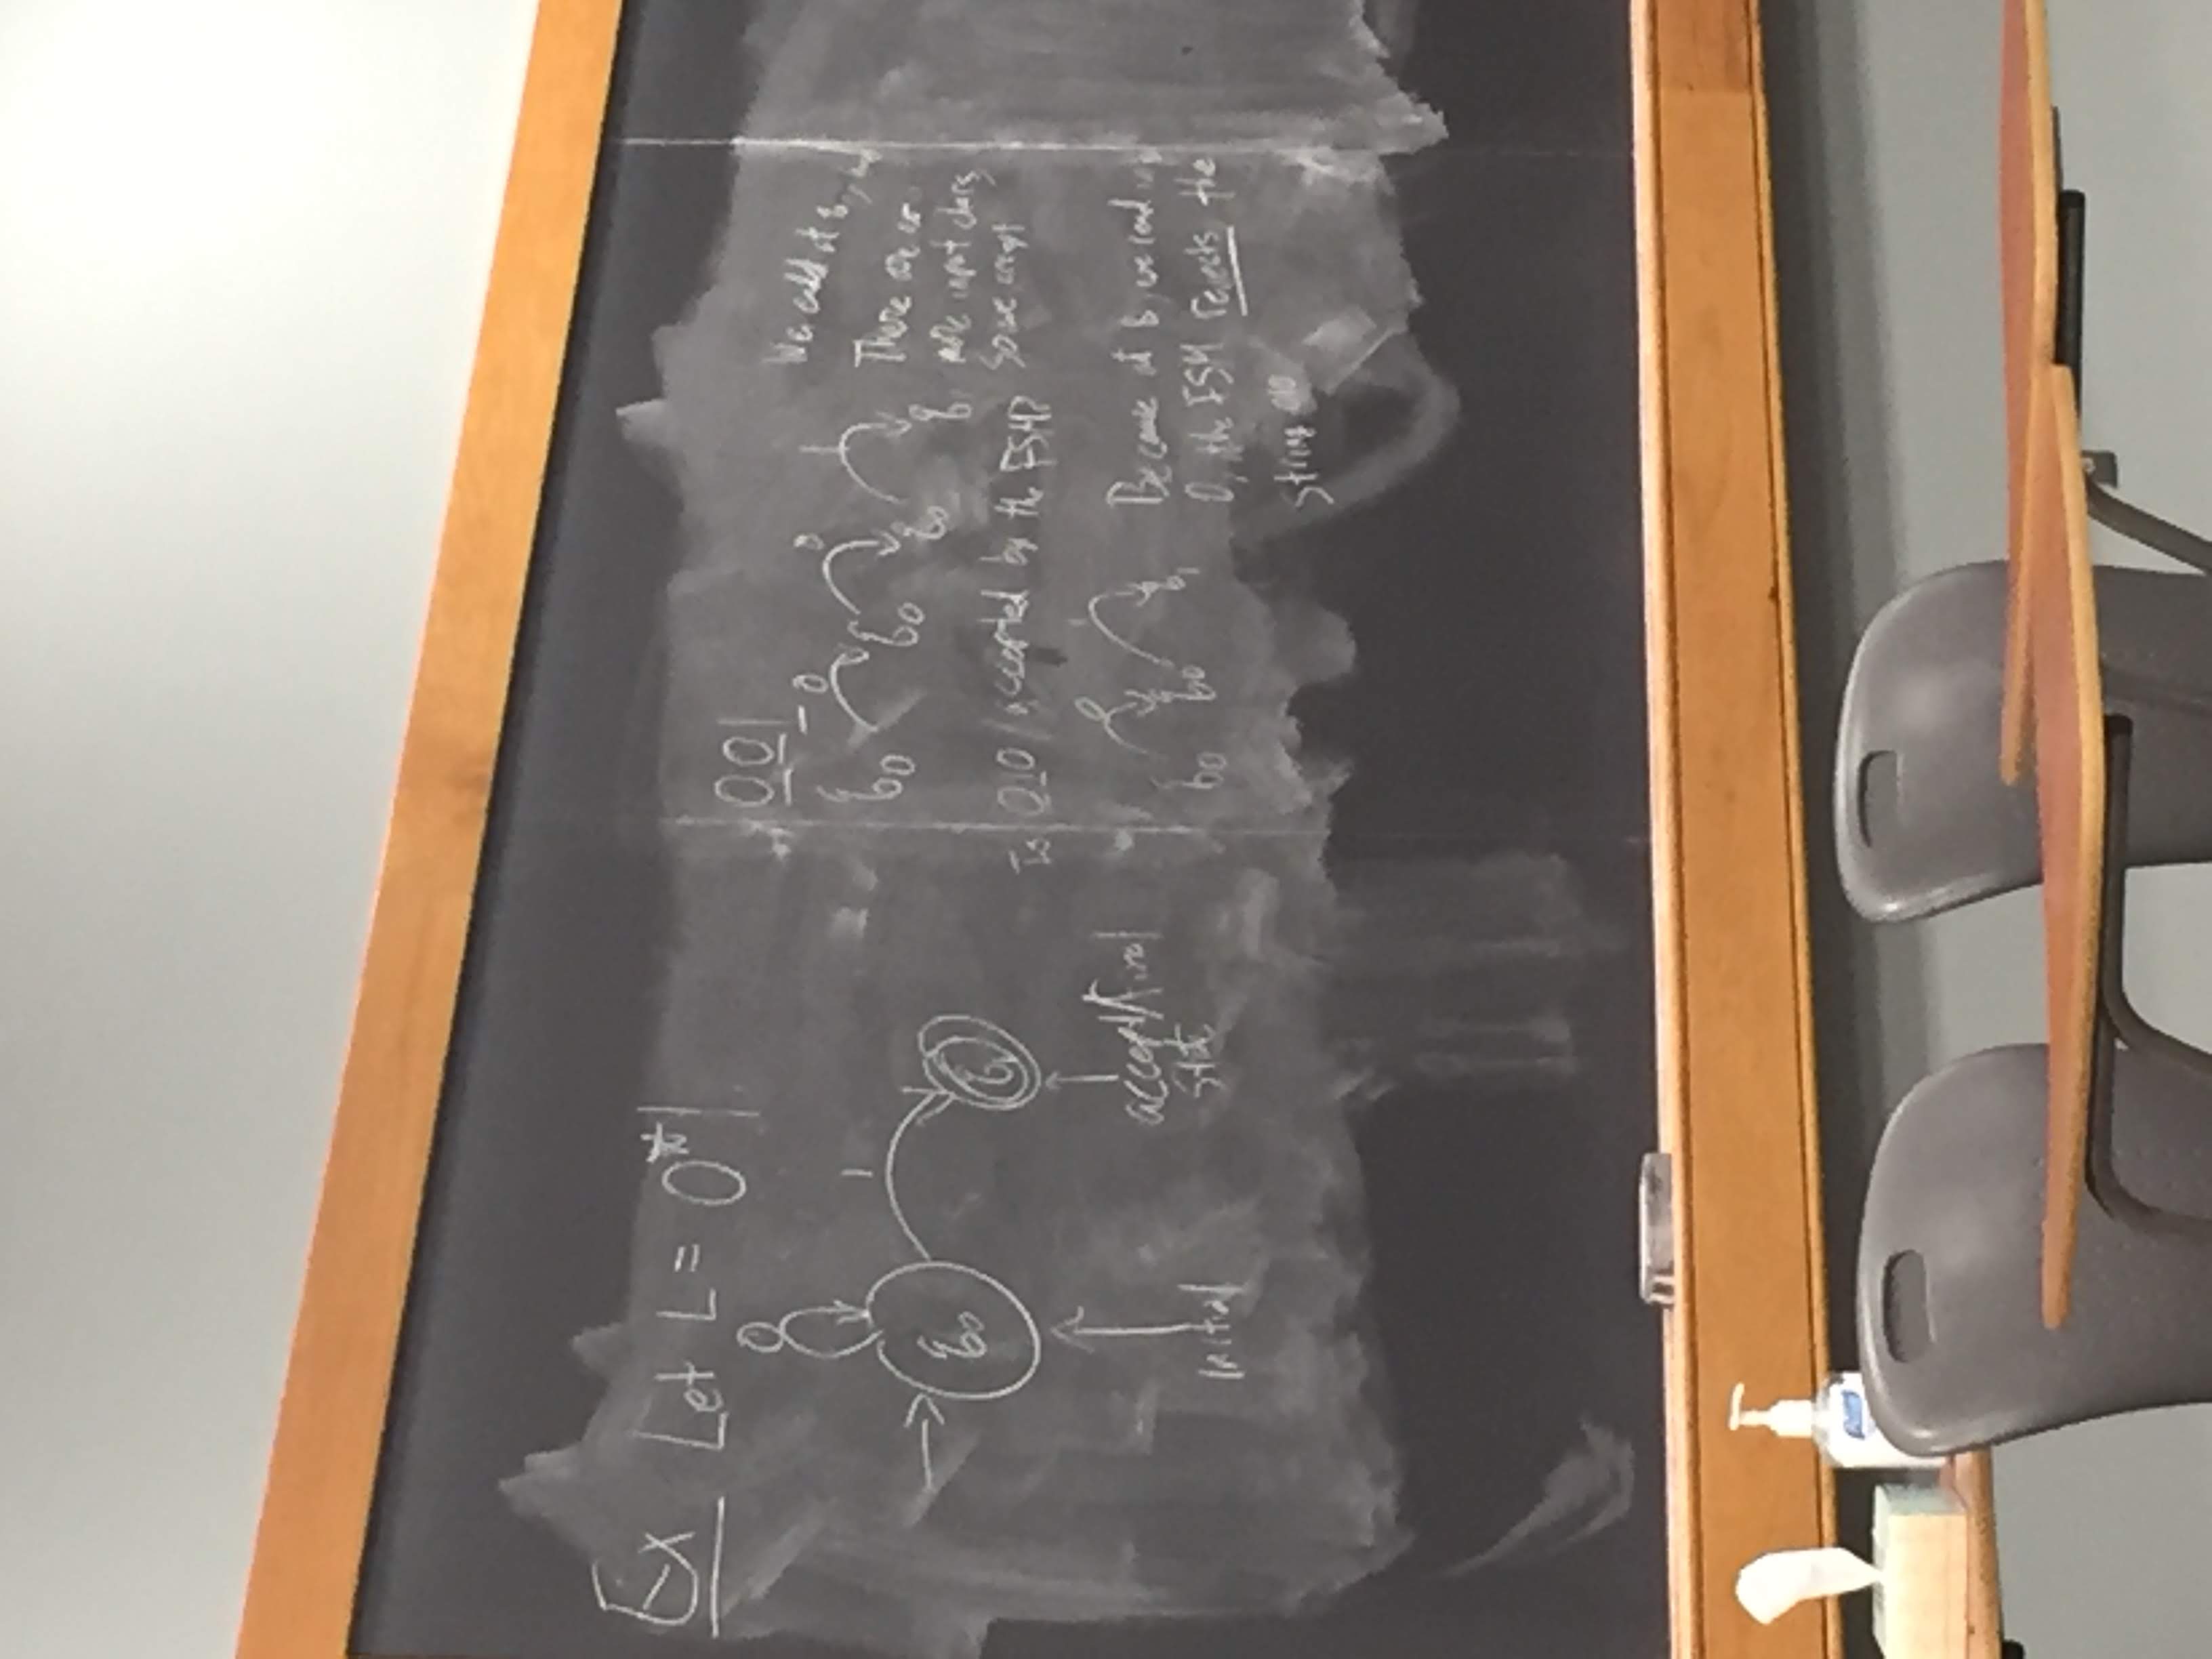 Ex Let L = 0*1
0
1
q0
q1
initial
accept/final
state
001
0 0 1
q0 q0 q0 q1
We end at q1, and
There are no
more input chars
so we accept
Is 010 accepted by the FSM?
0 1
q0 q0 q1
Because at q1 we read
0, the FSM rejects the
string 010
Purell